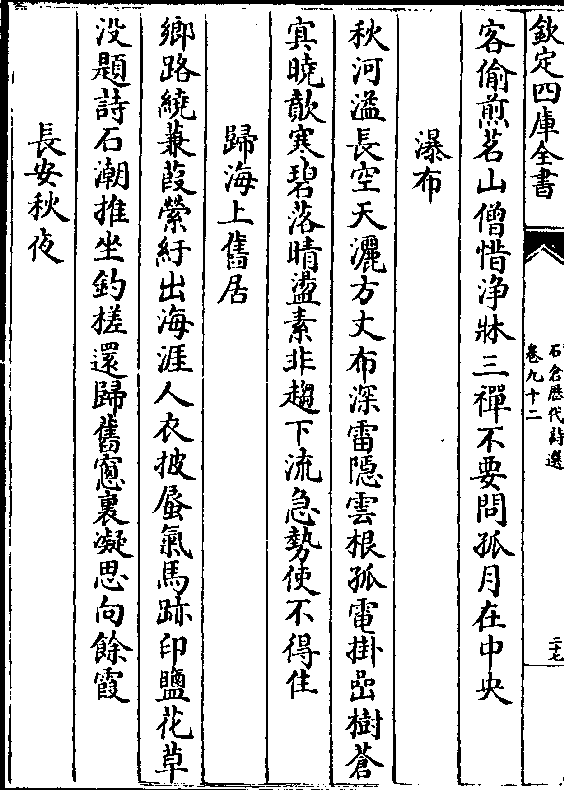 欽定四庫全書
石倉歷代詩選
卷九十二
二十七
客偷煎茗山僧惜浄牀三禪不要問孤月在中央
瀑布
秋河溢長空天灑方丈布深雷隠雲根孤電掛嵒樹蒼
寘曉歕寒碧落晴盪素非趨下流急勢使不得住
歸海上舊居
鄉路繞蒹葭縈紆出海涯人衣披蜃氣馬跡印鹽花草
没題詩石潮推坐釣槎還歸舊窻裏凝思向餘霞
長安秋夜